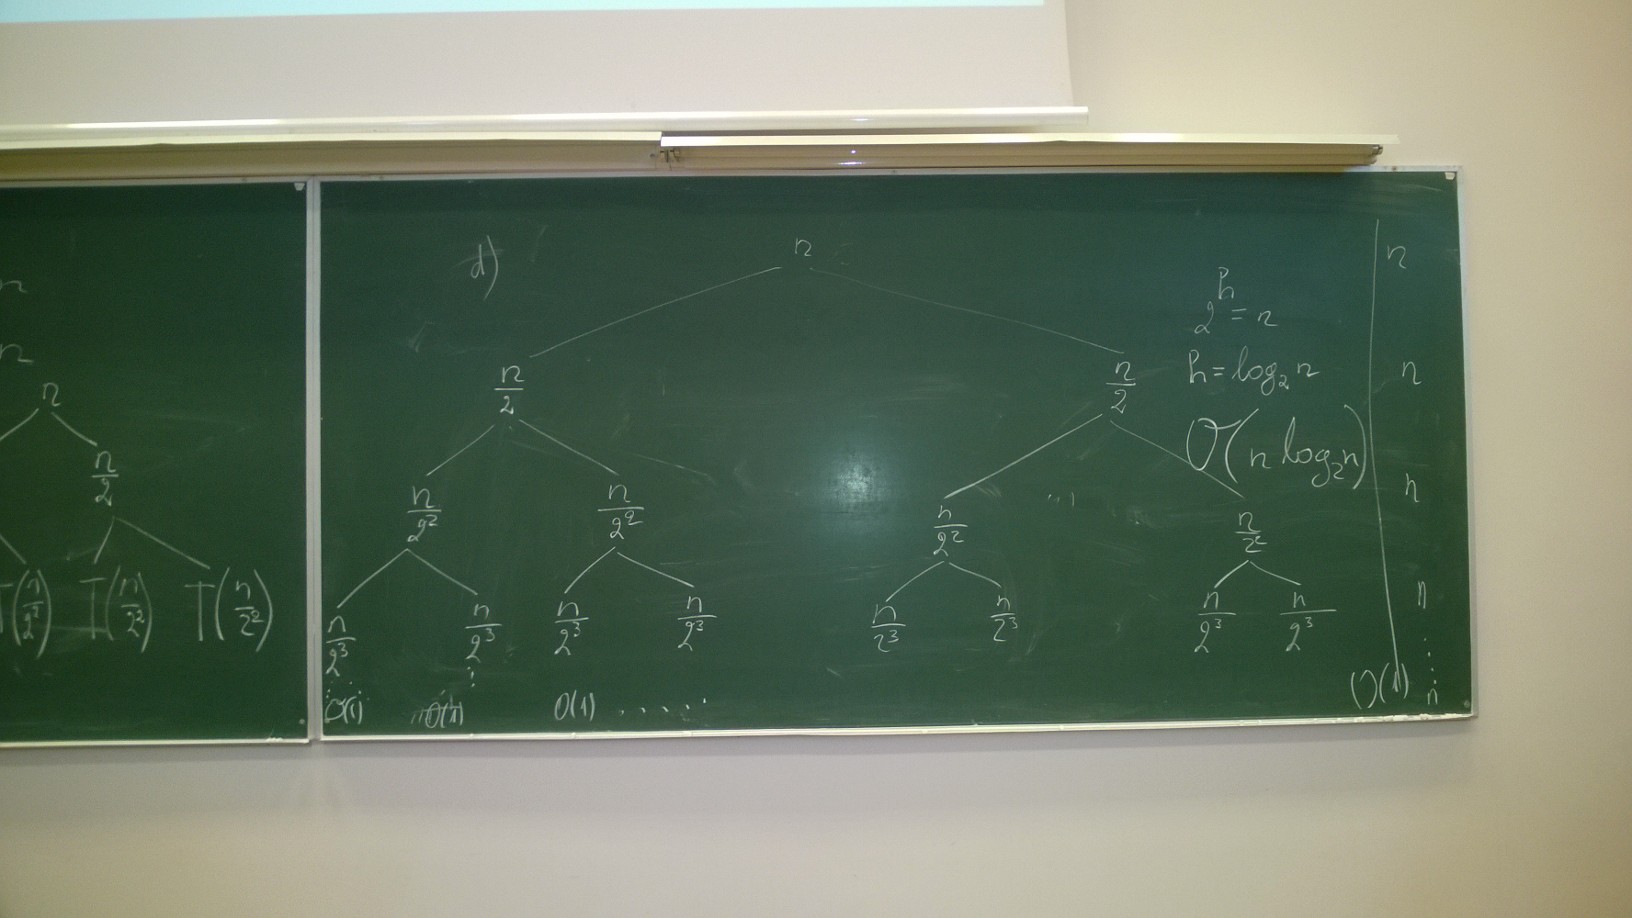 n
n
n
n/2
T(n/2²) T(n/2²) T(n/2²)
d)
n
n/2 n/2
n/2² n/2² n/2² n/2²
n/2³ n/2³ n/2³ n/2³ n/2³ n/2³ n/2³ n/2³
O(1) O(1) O(1) ..... O(1)
2^h = n
h = log₂ n
O(n log₂ n)
n
n
n
n
⋮
n